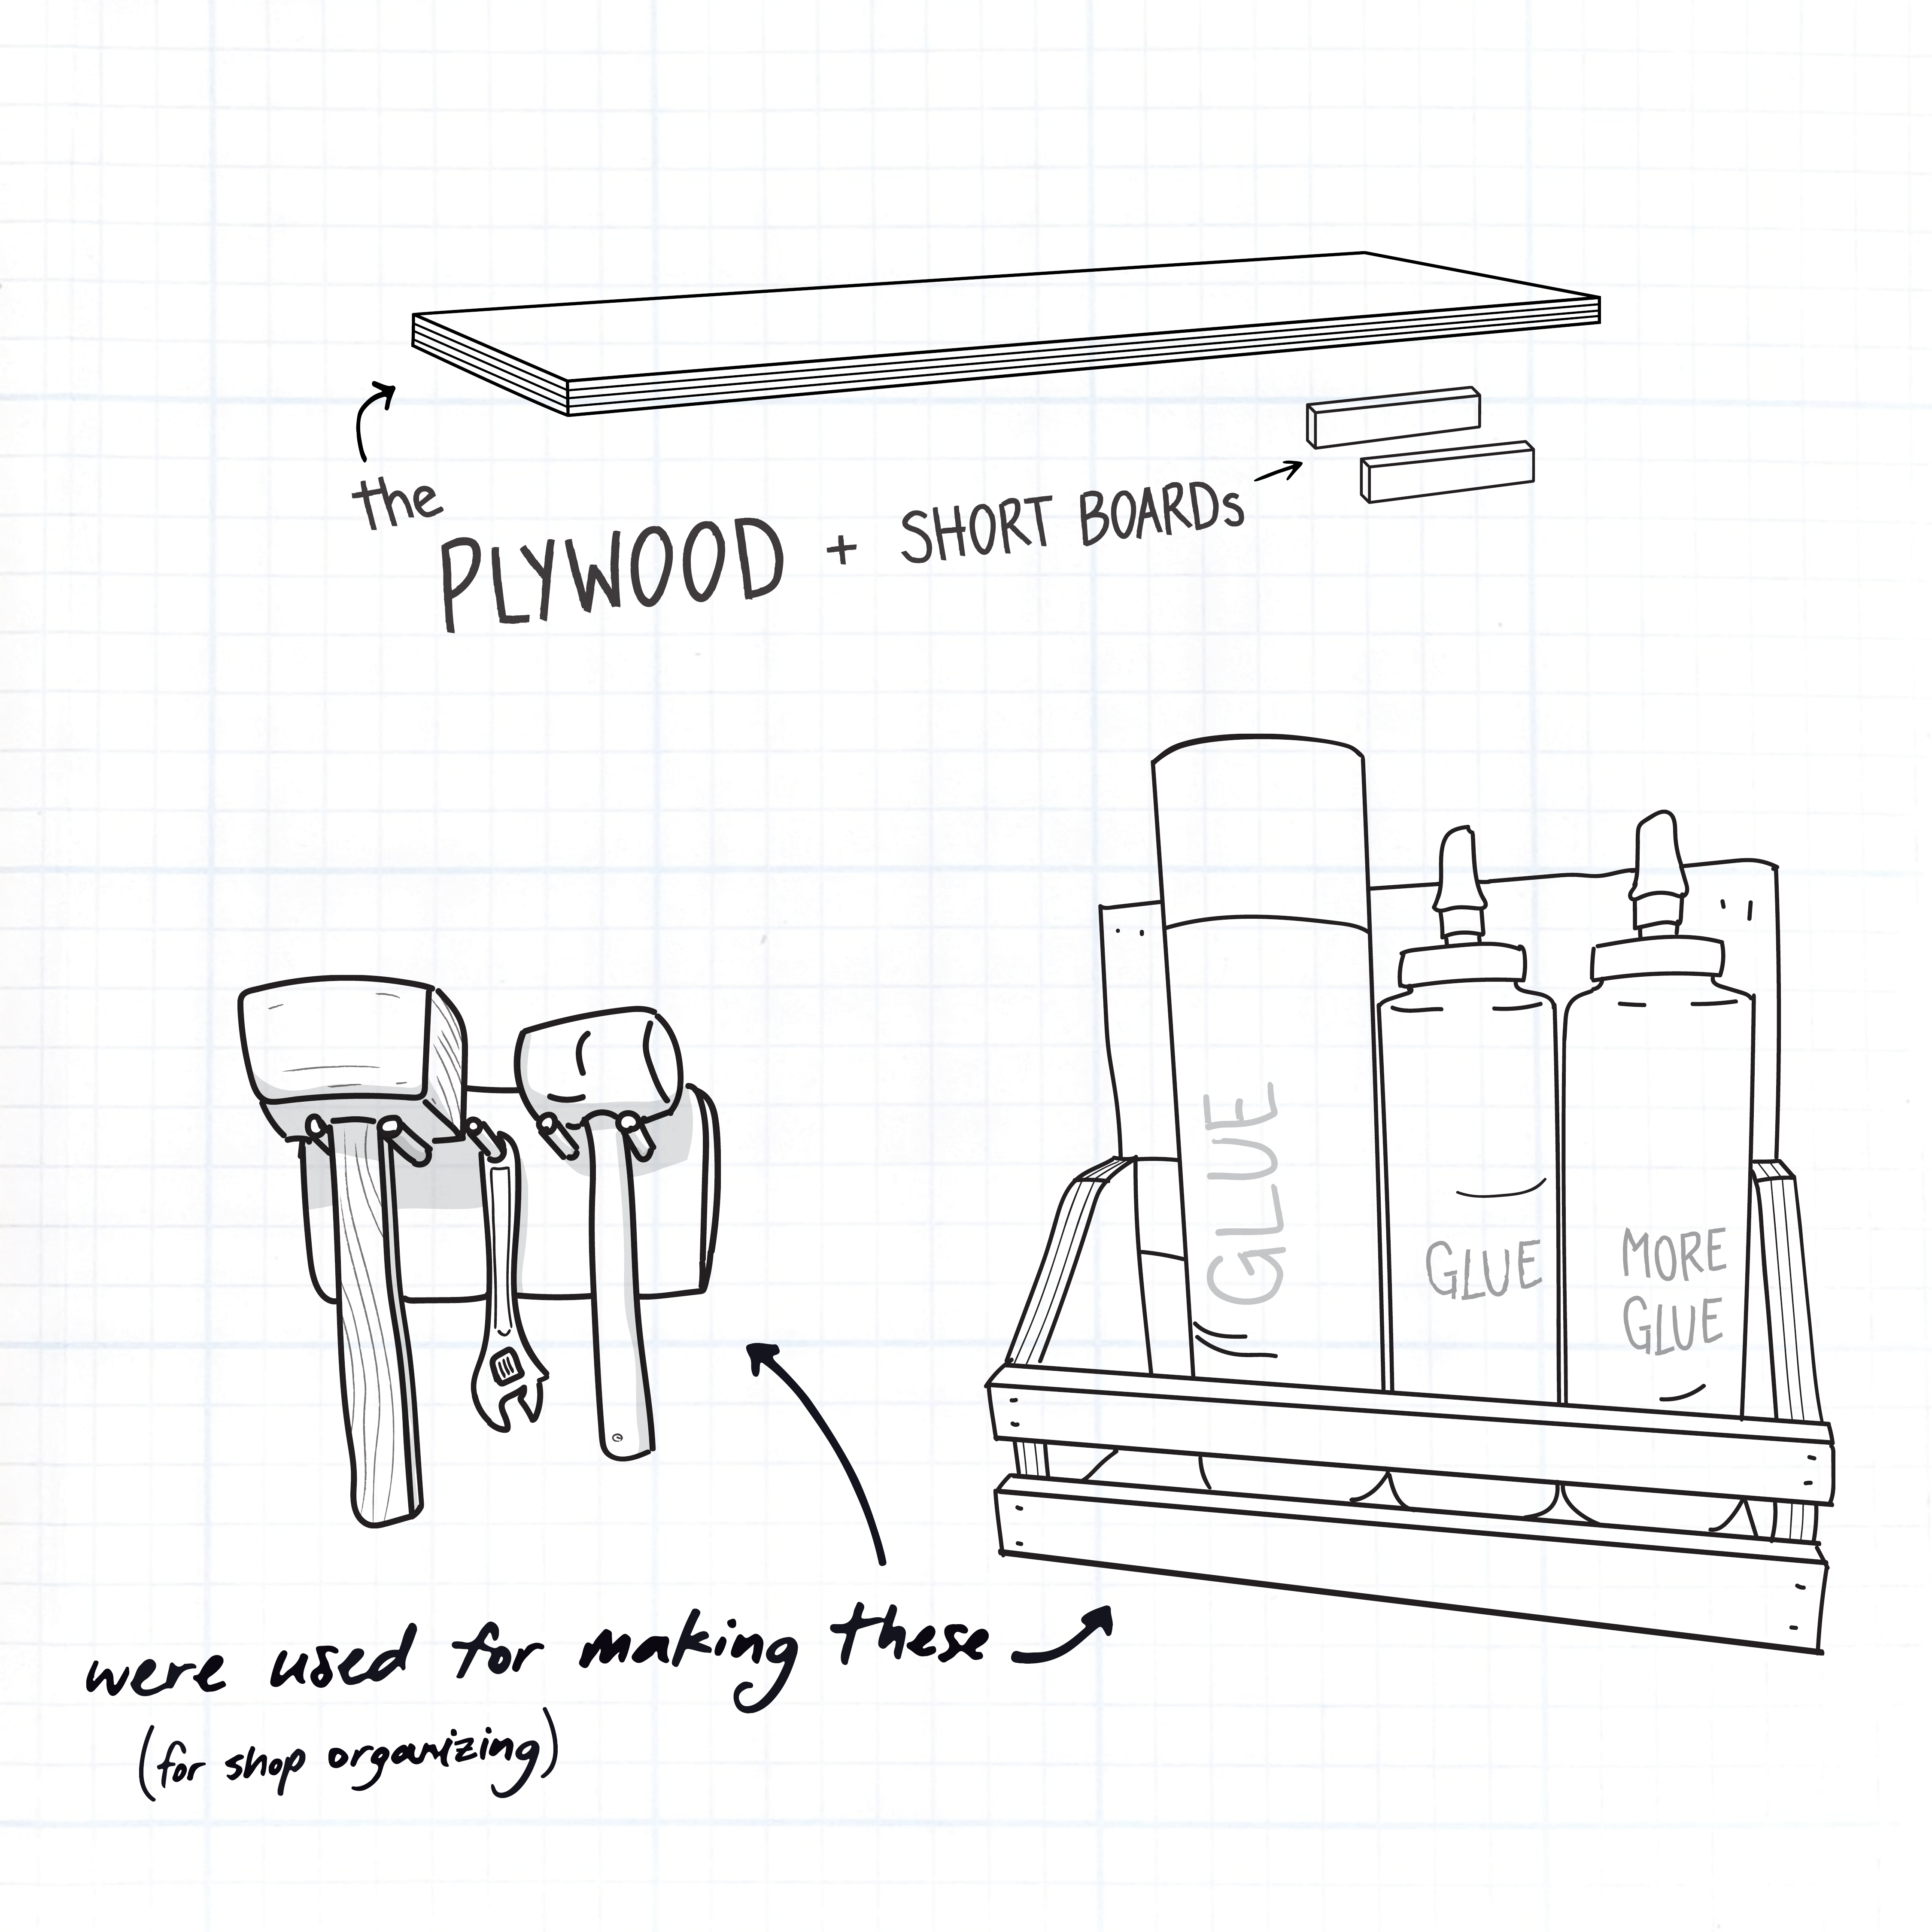 the
PLYWOOD + SHORT BOARDs
GLUE
GLUE
MORE
GLUE
were used for making these
(for shop organizing)